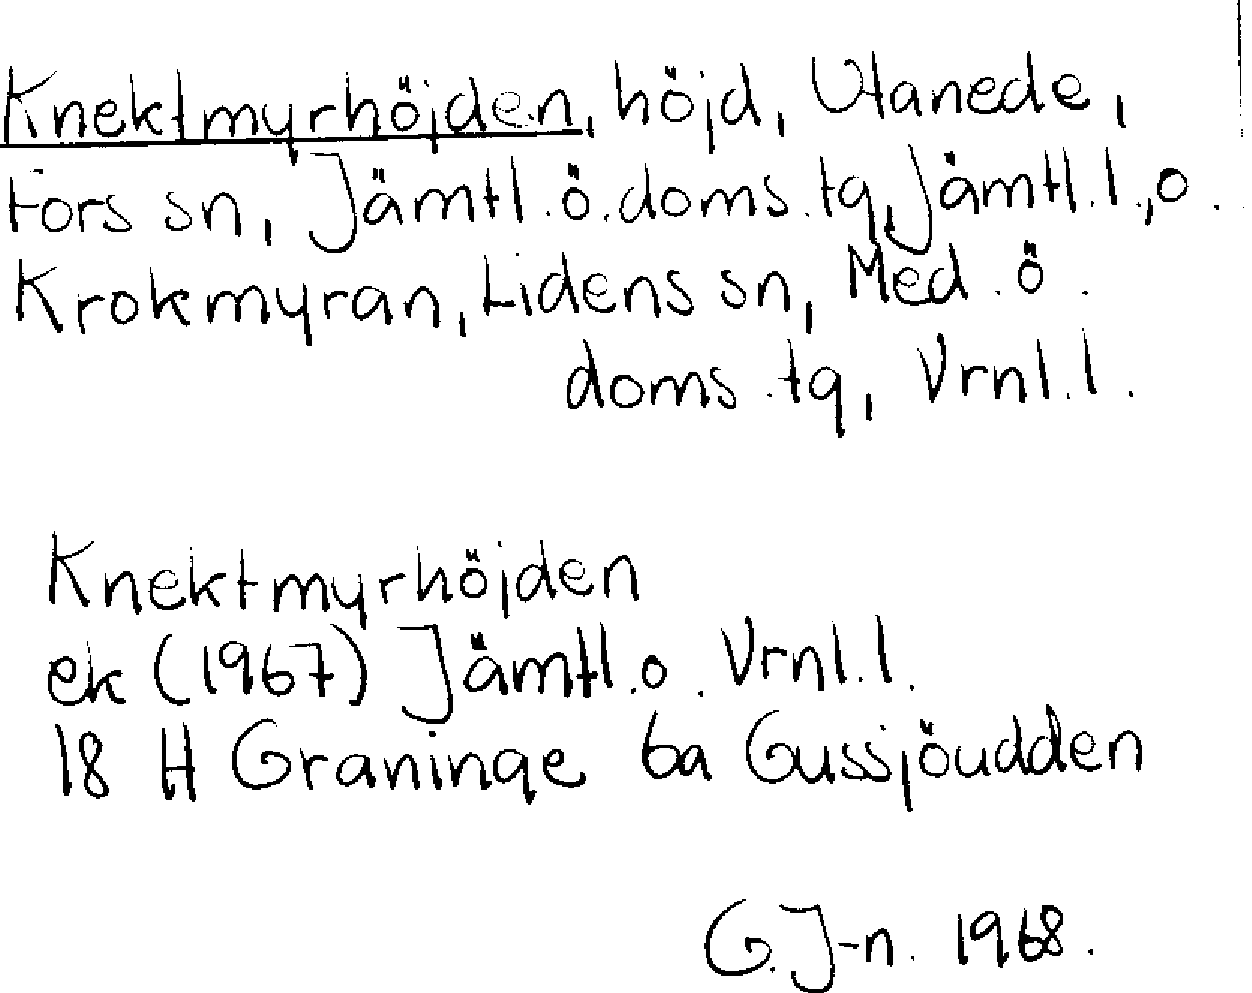 Knektmyrhöjden, höjd, Utanede,
Fors sn, Jämtl.ö.doms.tg, Jämtl.l., o.
Krokmyran, Lidens sn, Med.ö.
doms.tg, Vrnl.l.
Knektmyrhöjden
ek (1967) Jämtl.o. Vrnl.l.
18 H Graninge 6a Gussjöudden
G.J-n. 1968.